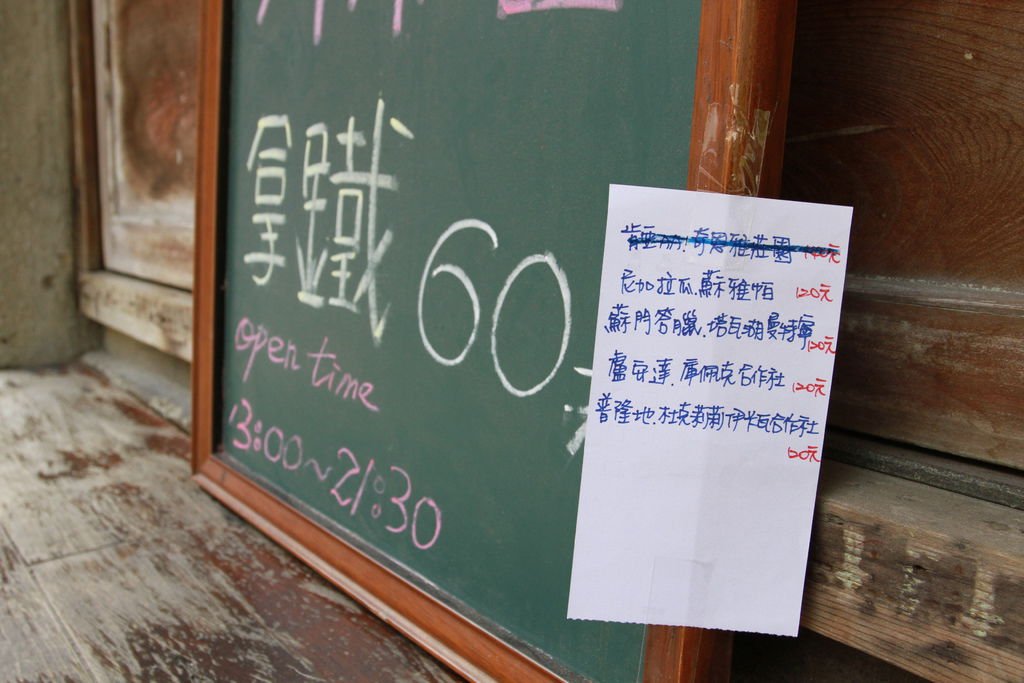 拿鐵 60元
open time
13:00~21:30
肯亞.奇恩雅莊園 140元
尼加拉瓜.蘇雅帕 120元
蘇門答臘.塔瓦湖曼特寧 120元
盧安達.庫佩克合作社 120元
普隆地.杜克莉爾伊卡瓦合作社
120元